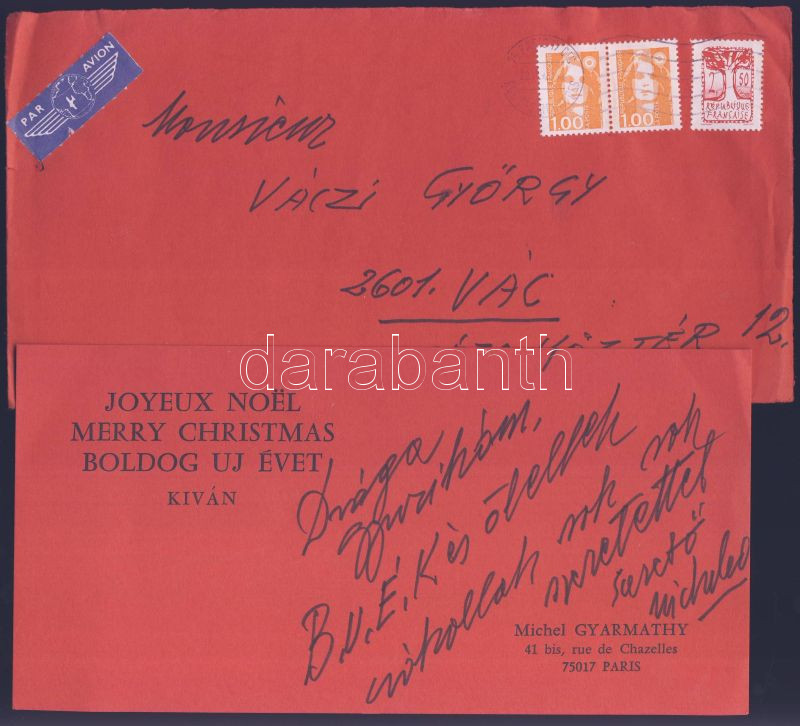 PAR AVION
1.00 1.00
2 50
REPUBLIQUE
FRANÇAISE
Monsieur
VÁCZI GYÖRGY
2601. VÁC
KÖZ TÉR 12.
darabanth
JOYEUX NOËL
MERRY CHRISTMAS
BOLDOG UJ ÉVET
KIVÁN
Drága
Gyurikám,
B.U.É.K és ölellek
csókollak sok sok
szeretettel
Michel GYARMATHY
41 bis, rue de Chazelles
75017 PARIS